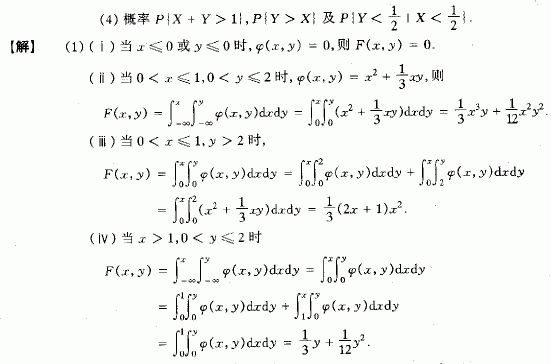 (4) 概率 P{X + Y > 1}, P{Y > X} 及 P{Y < 1/2 | X < 1/2}.
【解】 (1) (ⅰ) 当 x ⩽ 0 或 y ⩽ 0 时, φ(x, y) = 0, 则 F(x, y) = 0.
(ⅱ) 当 0 < x ⩽ 1, 0 < y ⩽ 2 时, φ(x, y) = x² + 1/3 xy, 则
F(x, y) = ∫_{-∞}^{x}∫_{-∞}^{y} φ(x, y)dxdy = ∫_0^x∫_0^y (x² + 1/3 xy)dxdy = 1/3 x³y + 1/12 x²y².
(ⅲ) 当 0 < x ⩽ 1, y > 2 时,
F(x, y) = ∫_0^x∫_0^y φ(x, y)dxdy = ∫_0^x∫_0^2 φ(x, y)dxdy + ∫_0^x∫_2^y φ(x, y)dxdy
= ∫_0^x∫_0^2 (x² + 1/3 xy)dxdy = 1/3 (2x + 1)x².
(ⅳ) 当 x > 1, 0 < y ⩽ 2 时
F(x, y) = ∫_{-∞}^{x}∫_{-∞}^{y} φ(x, y)dxdy = ∫_0^x∫_0^y φ(x, y)dxdy
= ∫_0^1∫_0^y φ(x, y)dxdy + ∫_1^x∫_0^y φ(x, y)dxdy
= ∫_0^1∫_0^y φ(x, y)dxdy = 1/3 y + 1/12 y².